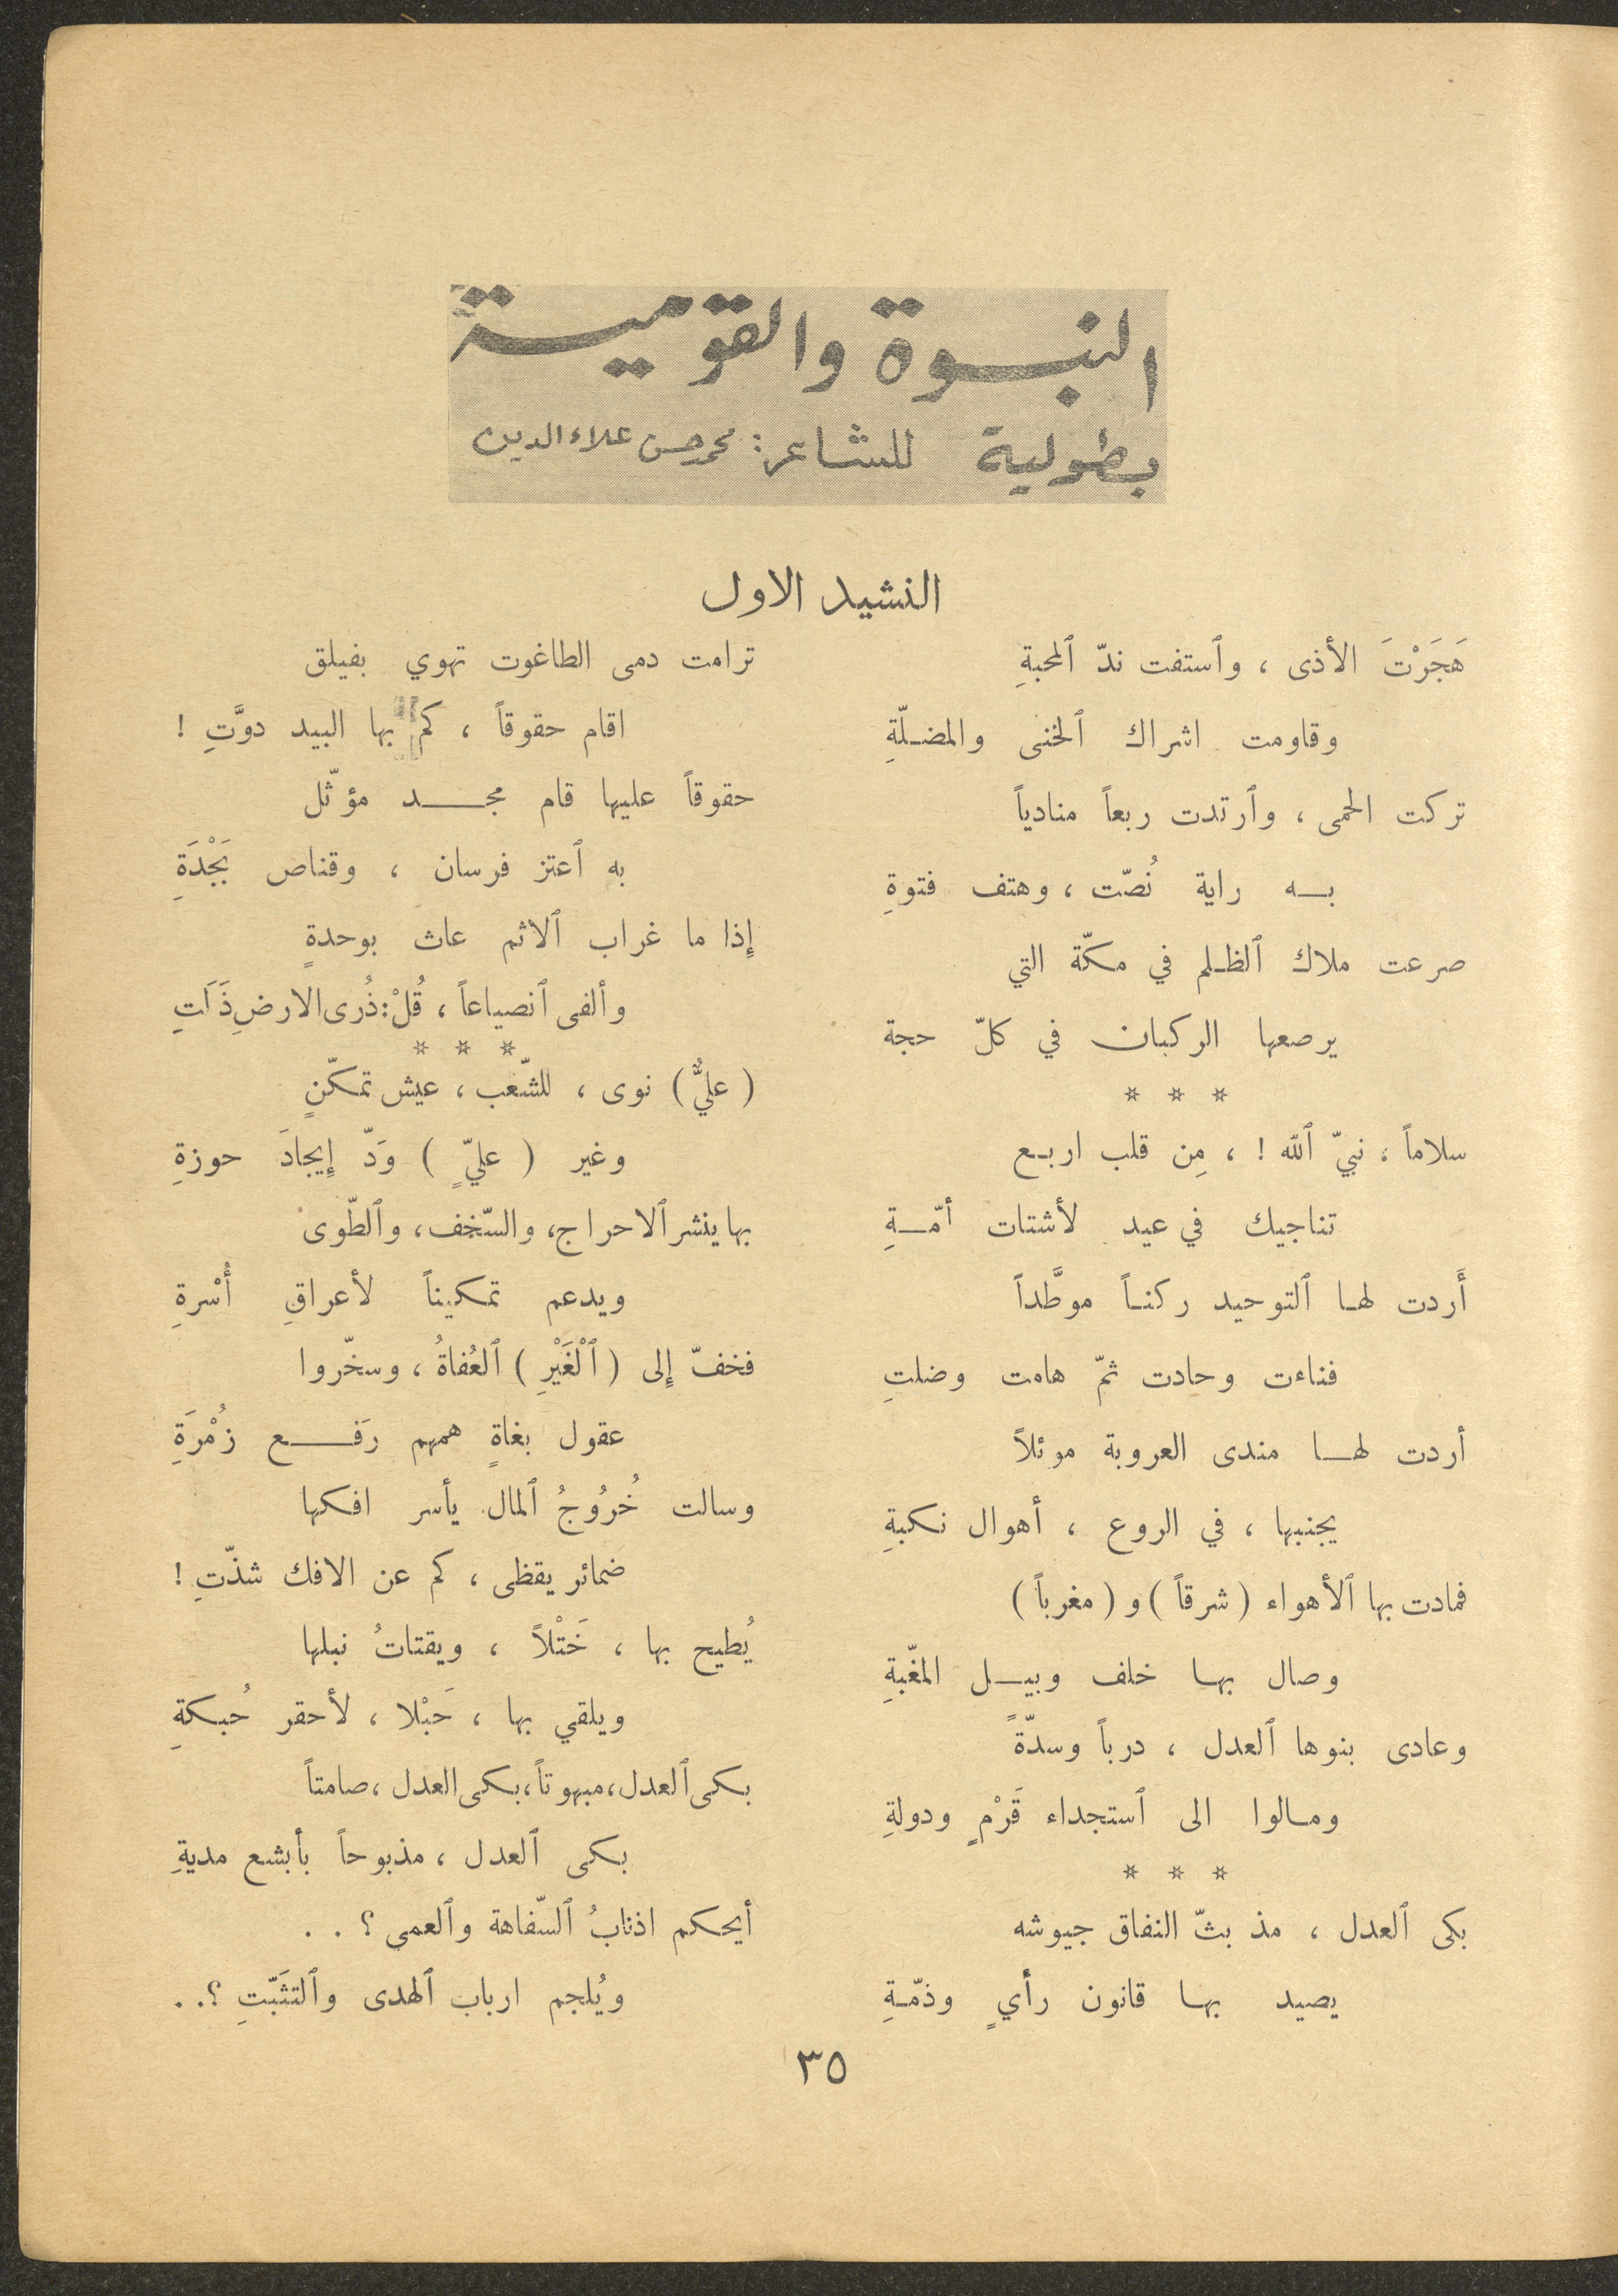 النبوة والقومية
بطولية للشاعر: محمد حسن علاء الدين
النشيد الاول
هَجَرْتَ الأذى ، وٱستفت ندّ ٱلمحبةِ
وقاومت اشراك ٱلخنى والمضلّةِ
تركت الحمى ، وٱرتدت ربعاً منادياً
به راية نُصّت ، وهتف فتوةِ
صرعت ملاك ٱلظلم في مكّة التي
يرصعها الركبان في كلّ حجة
* * *
سلاماً ، نبيّ ٱلله ! ، مِن قلب اربع
تناجيك في عيد لأشتات أمّةِ
أَردت لها ٱلتوحيد ركناً موطَّداً
فناءت وحادت ثمّ هامت وضلتِ
أردت لها مندى العروبة موئلاً
يجنبها ، في الروع ، أهوال نكبةِ
فمادت بها ٱلأهواء ( شرقاً ) و ( مغرباً )
وصال بها خلف وبيل المغّبةِ
وعادى بنوها ٱلعدل ، درباً وسدّةً
ومالوا الى ٱستجداء قَرْمٍ ودولةِ
* * *
بكى ٱلعدل ، مذ بثّ النفاق جيوشه
يصيد بها قانون رأيٍ وذمّةِ
ترامت دمى الطاغوت تهوي بفيلق
اقام حقوقاً ، كم بها البيد دوَّتِ !
حقوقاً عليها قام مجد مؤثّل
به ٱعتز فرسان ، وقناص نَجْدَةِ
إِذا ما غراب ٱلاثم عاث بوحدةٍ
وألفى ٱنصياعاً ، قُلْ : ذُرى الارضِ ذَلَتِ
* * *
( عليٌّ ) نوى ، للشّعب ، عيش تمكّنٍ
وغير ( عليّ ٍ ) وَدّ إِيجادَ حوزةِ
بها ينشر ٱلاحراج ، والسّخف ، وٱلطّوى
ويدعم تمكيناً لأعراقِ أُسْرةِ
فخفّ إِلى ( ٱلْغَيْرِ ) ٱلعُفاةُ ، وسخّروا
عقول بغاةٍ همهم رَفع زُمْرَةِ
وسالت خُرُوجُ ٱلمال يأسر افكها
ضمائر يقظى ، كم عن الافك شذّتِ !
يُطيح بها ، خَتْلاً ، ويقتاتُ نبلها
ويلقي بها ، حَبْلا ، لأحقر حُبكةِ
بكى ٱلعدل ، مبهوتاً ، بكى العدل ، صامتاً
بكى ٱلعدل ، مذبوحاً بأبشع مديةِ
أيحكم اذنابُ ٱلسّفاهة وٱلعمى ؟ . .
ويُلجم ارباب ٱلهدى وٱلتثَبّتِ ؟ . .
٣٥